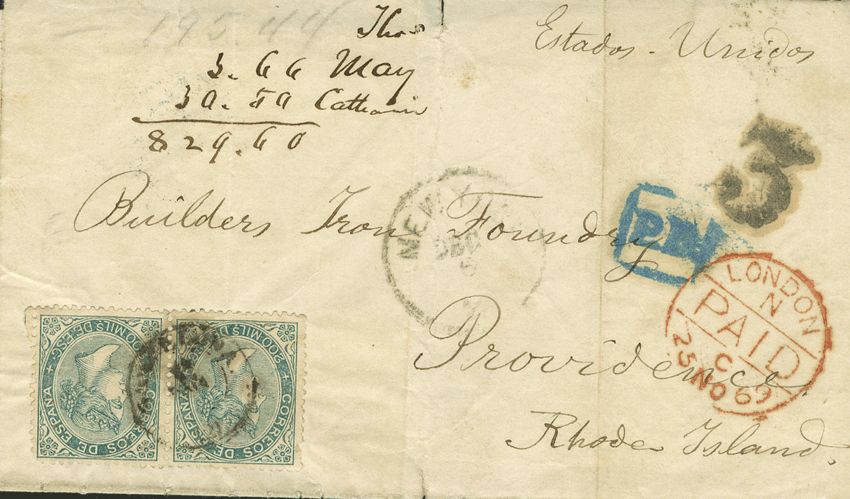 195 44
Thos
Estados - Unidos
3.66 May
30.50
829.60
3
Builders Iron Foundry
NEW
DEC
P.D.
LONDON
N
PAID
C
25 NO 69
Providence
Rhode Island.
CORREOS DE ESPAÑA
200 MILS DE ESCO
CORREOS DE ESPAÑA
200 MILS DE ESCO